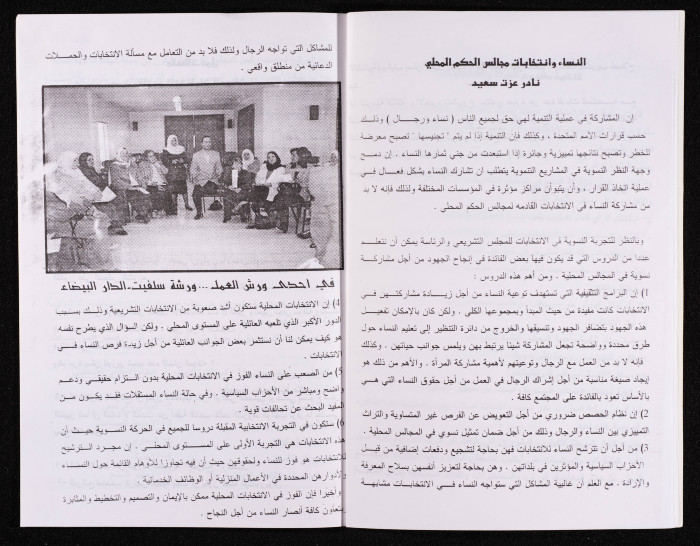 النساء وانتخابات مجالس الحكم المحلي
نادر عزت سعيد
إن المشاركة في عملية التنمية لهي حق لجميع الناس ( نساء ورجـــــال ) وذلك
حسب قرارات الأمم المتحدة ، وكذلك فإن التنمية إذا لم يتم " تجنيسها " تصبح معرضة
للخطر وتصبح نتائجها تمييزية وجائرة إذا استبعدت من جني ثمارها النساء . إن دمـــج
وجهة النظر النسوية في المشاريع التنموية يتطلب ان تشارك النساء بشكل فعـــال فـــي
عملية اتخاذ القرار ، وأن يتبوأن مراكز مؤثرة في المؤسسات المختلفة ولذلك فإنه لا بد
من مشاركة النساء في الانتخابات القادمه لمجالس الحكم المحلي .
وبالنظر للتجربة النسوية في الانتخابات للمجلس التشريعي والرئاسة يمكن أن نتعلـــم
عددا من الدروس التي قد يكون فيها بعض الفائدة في إنجاح الجهود من أجل مشاركـــة
نسوية في المجالس المحلية . ومن أهم هذه الدروس :
1) إن البرامج التثقيفية التي تستهدف توعية النساء من أجل زيـــادة مشاركتهـــن في
الانتخابات كانت مفيدة من حيث المبدأ وبمجموعها الكلي . ولكن كان بالإمكان تفعيـــل
هذه الجهود بتضافر الجهود وتنسيقها والخروج من دائرة التنظير إلى تعليم النساء حول
طرق محددة وواضحة تجعل المشاركة شيئا يرتبط بهن ويلمس جوانب حياتهن . وكذلك
فإنه لا بد من العمل مع الرجال وتوعيتهم لأهمية مشاركة المرأة . والأهم من ذلك هو
إيجاد صيغة مناسبة من أجل إشراك الرجال في العمل من أجل حقوق النساء التي هـــي
بالأساس تعود بالفائدة على المجتمع كافة .
2) إن نظام الحصص ضروري من أجل التعويض عن الفرص غير المتساوية والتراث
التمييزي بين النساء والرجال وذلك من أجل ضمان تمثيل نسوي في المجالس المحلية .
3) من أجل أن تترشح النساء للانتخابات فهن بحاجة لتشجيع ودفعات إضافية من قبـــل
الأحزاب السياسية والمؤثرين في بلداتهن . وهن بحاجة لتعزيز أنفسهن بسلاح المعرفة
والإرادة . مع العلم أن غالبية المشاكل التي ستواجه النساء فـــي الانتخابـــات مشابهـــة
للمشاكل التي تواجه الرجال ولذلك فلا بد من التعامل مع مسألة الانتخابات والحمـــلات
الدعائية من منطلق واقعي .
في احدى ورش العمل ... ورشة سلفيت-الدار البيضاء
4) إن الانتخابات المحلية ستكون أشد صعوبة من الانتخابات التشريعية وذلـــك بسبـــب
الدور الأكبر الذي تلعبه العائلية على المستوى المحلي . ولكن السؤال الذي يطرح نفسه
هو كيف يمكن لنا أن نستثمر بعض الجوانب العائلية من أجل زيادة فرص النساء فـــي
الانتخابات .
5) من الصعب على النساء الفوز في الانتخابات المحلية بدون التـــزام حقيقـــي ودعـــم
واضح ومباشر من الأحزاب السياسية . وفي حالة النساء المستقلات فقـــد يكـــون مـــن
المفيد البحث عن تحالفات قوية .
6) ستكون في التجربة الانتخابية المقبلة دروسا للجميع في الحركة النسوية حيـــث أن
هذه الانتخابات هي التجربة الأولى على المستـــوى المحلـــي . إن مجـــرد الترشيـــح
للانتخابات هو فوز للنساء ولحقوقهن حيث أن فيه تجاوزا للأوهام القائمة حول النســـاء
وأدوارهن المحددة في الأعمال المنزلية أو الوظائف الخدماتية .
وأخيرا فإن الفوز في الانتخابات المحلية ممكن بالإيمان والتصميم والتخطيط والمثابرة
بتعاون كافة أنصار النساء من أجل النجاح .